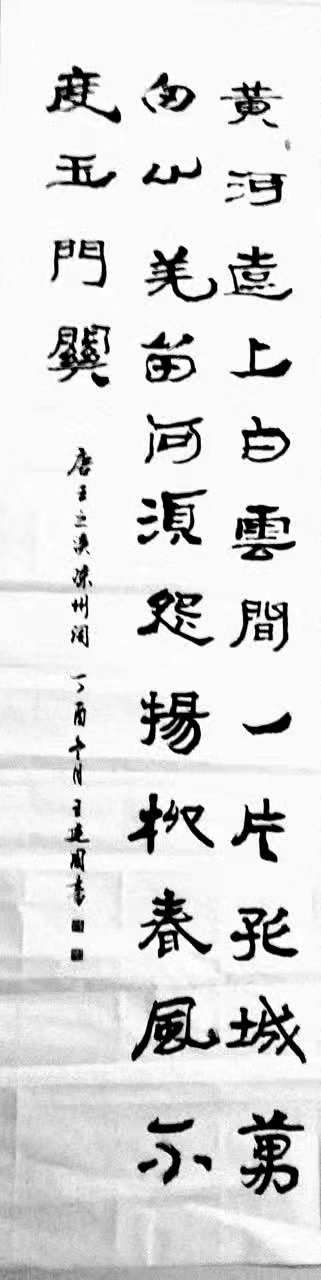 黄河遠上白雲間一片孤城萬
仞山羌笛何須怨楊柳春風不
度玉門關
唐王之渙涼州词 丁酉年月王建國書